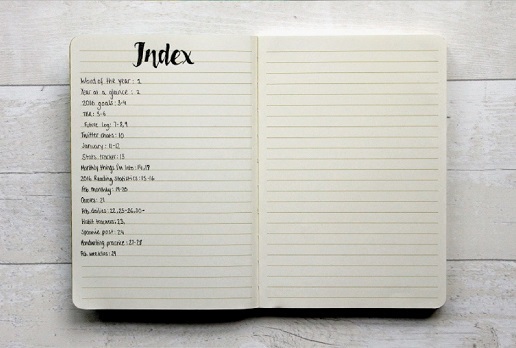 Index
Word of the year: 1
Year at a glance: 2
2016 goals: 3-4
TBR: 5-6
Future log: 7-8,9
Twitter chats: 10
January: 11-12
Stats tracker: 13
Monthly things I'm into: 14,18
2016 Reading statistics: 15-16
Feb monthly: 19-20
Quotes: 21
Feb dailies: 22, 25-26, 30-
Habit tracker: 23
Spoonie post: 24
Handwriting practice: 27-28
Feb weeklies: 29